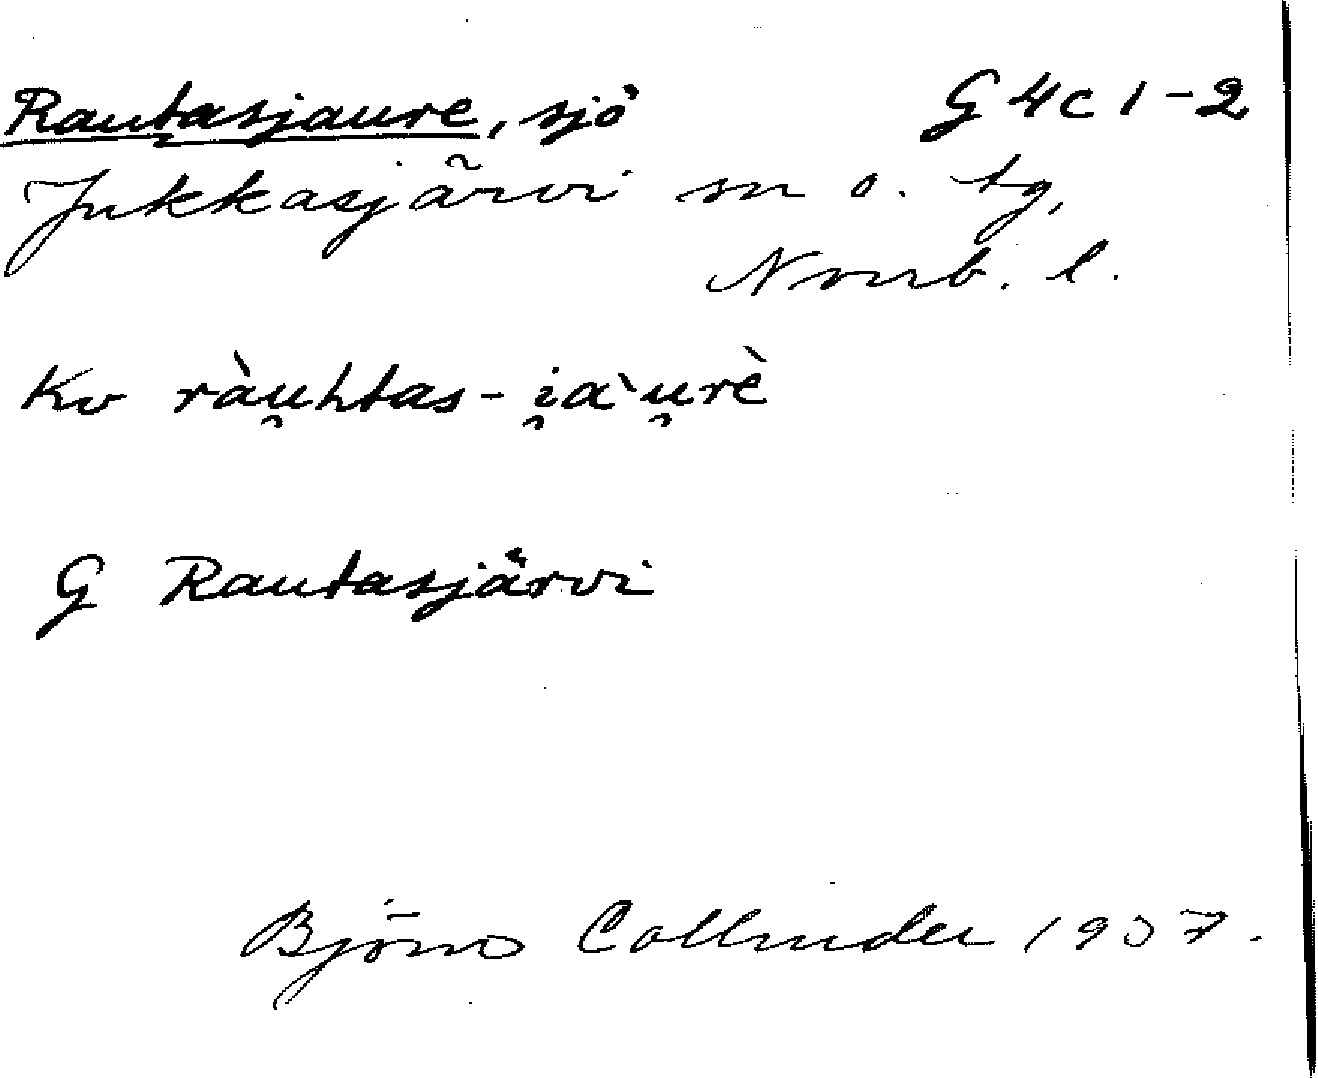 Rautasjaure, sjö G 4c 1-2
Jukkasjärvi sn o. tg,
Norrb. l.
Kv ràu̯htas-i̯a`u̯rè
G Rautasjärvi
Björn Collinder 1937.